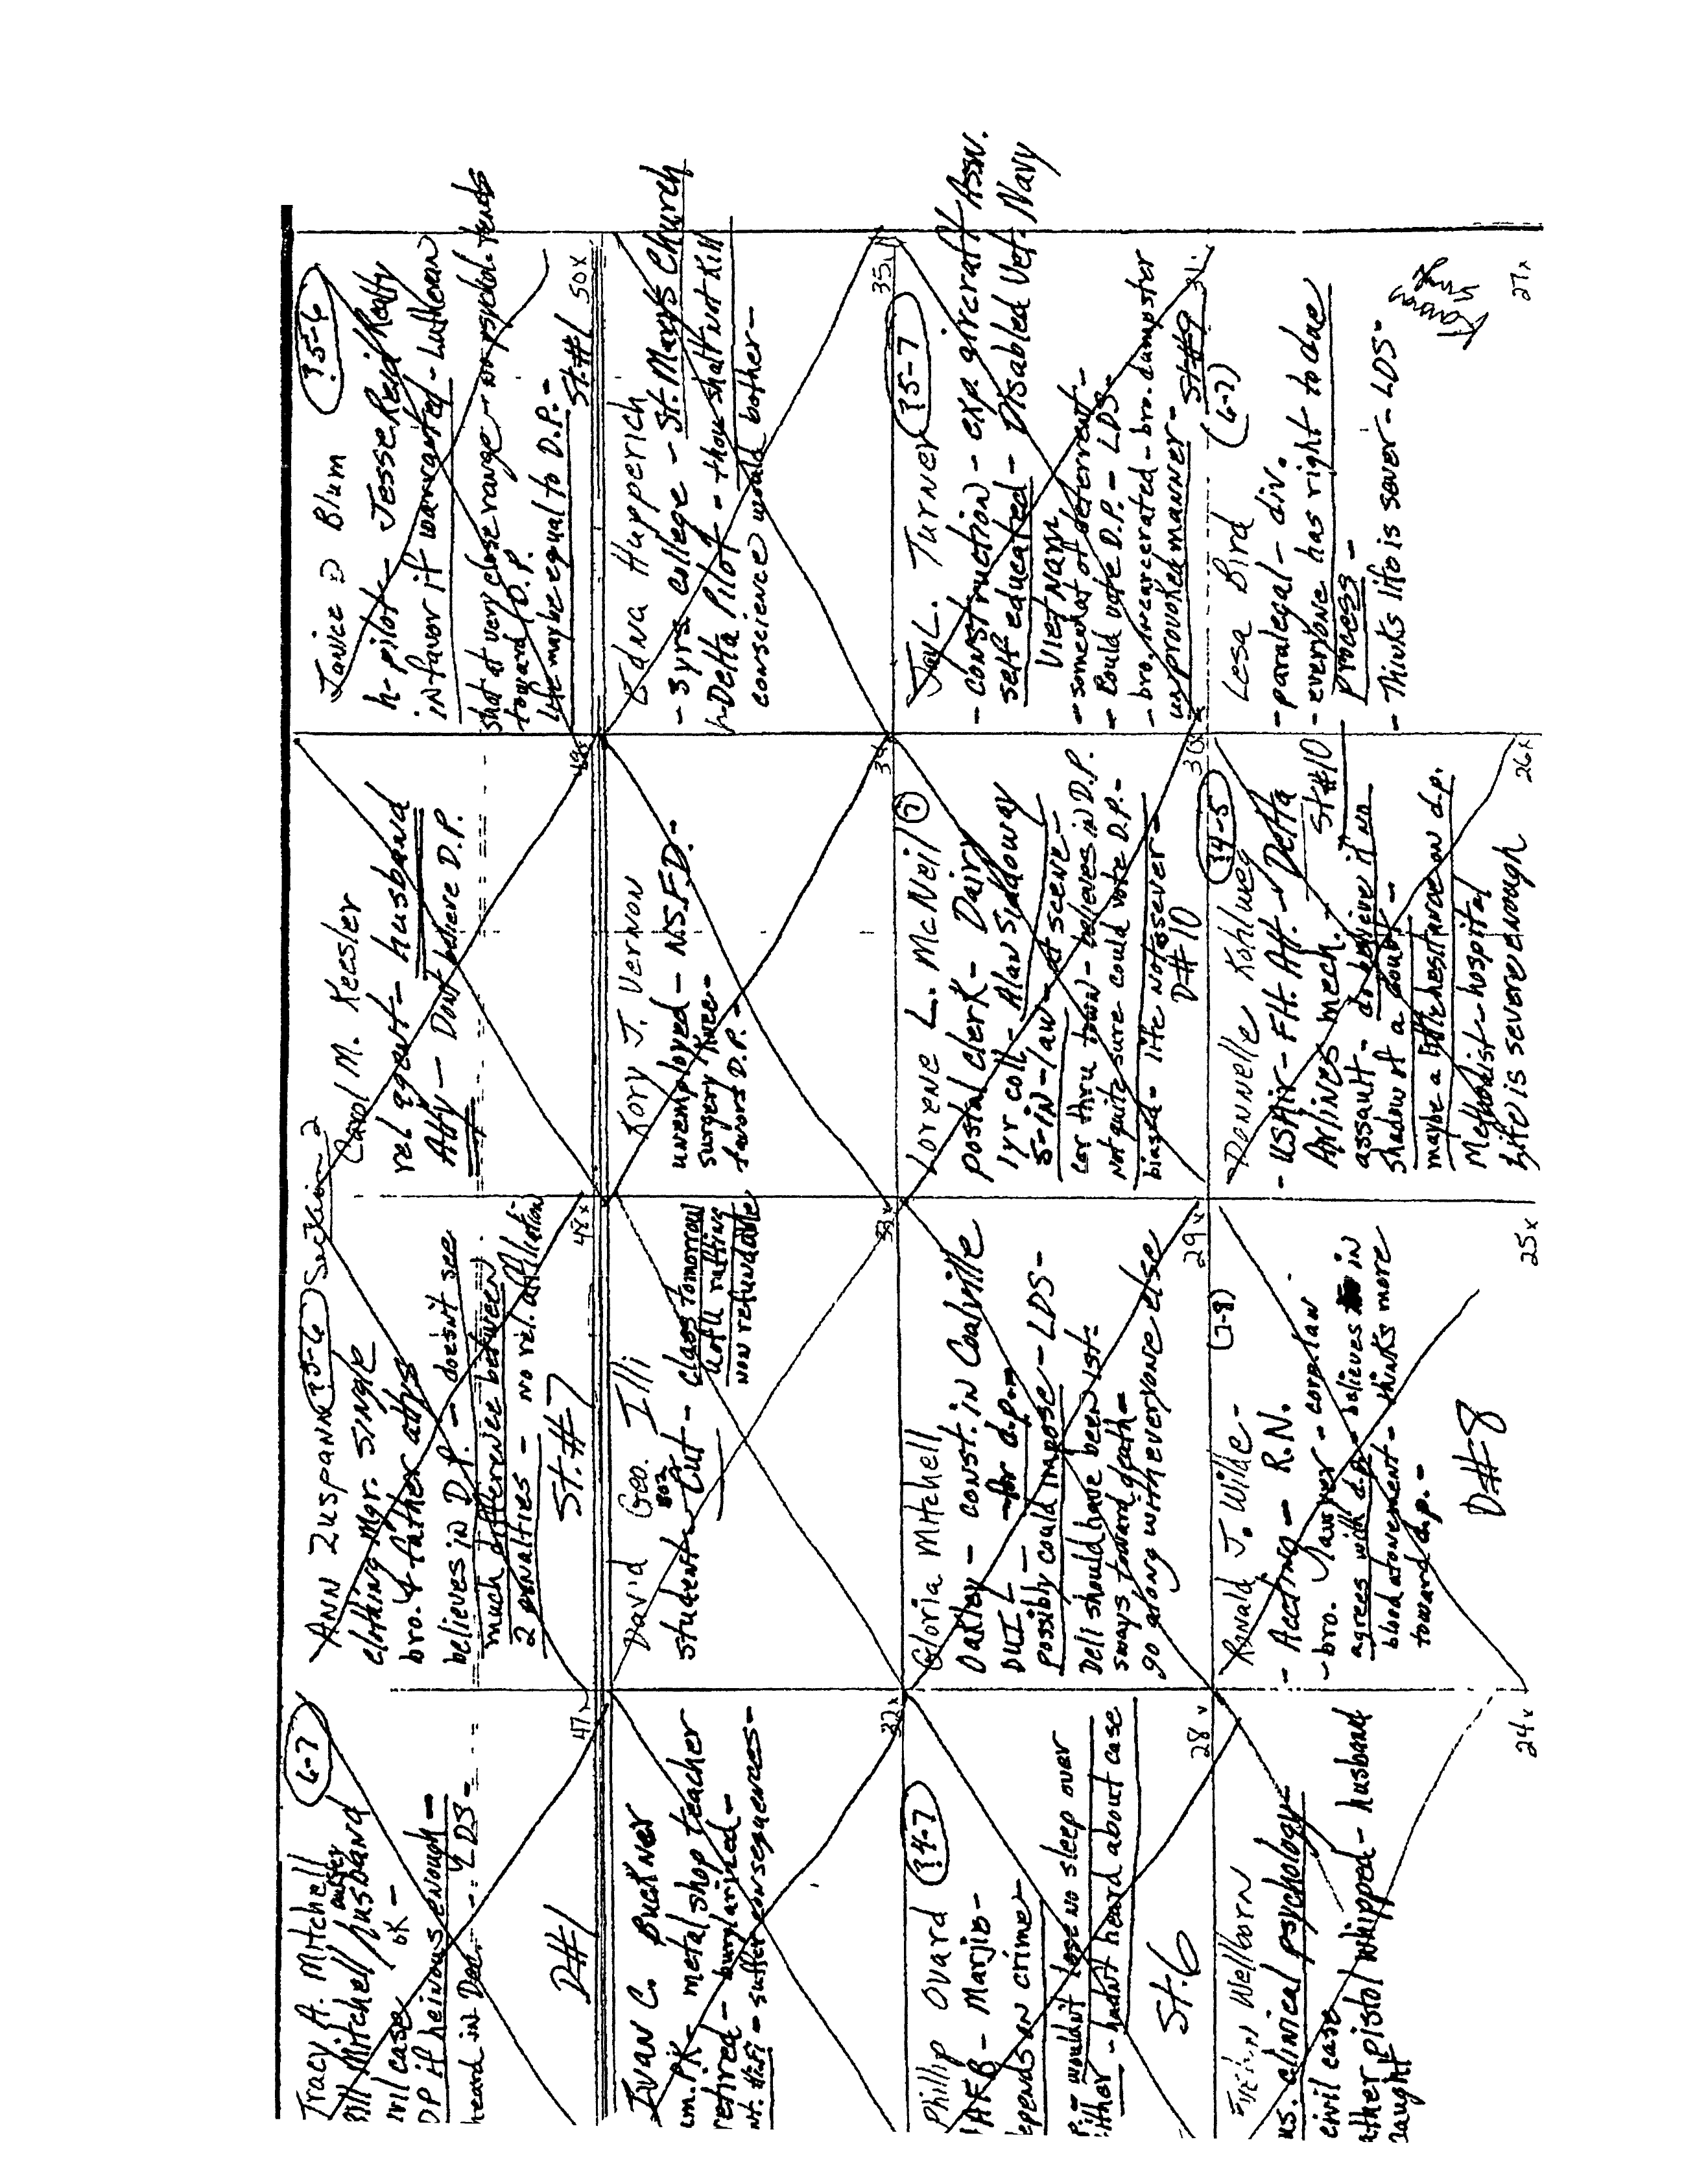 Tracy A. Mitchell
6-7
Bill Mitchell / husband
civil case OK -
DP if heinous enough -
heard in Dec. - LDS -
D#1
47x
ANN Zuspann
?5-6
Section 2
clothing mgr. single
bro. & father attys
believes in D.P. - doesn't see
much difference between
2 penalties - no rel. affiliation
St. #7
48x
Carol M. Kessler
rel agent - husband
Atty - Don't believe D.P.
Janice D Blum
?5-6
h- pilot - Jesse Reid Realty
in favor if warranted - Lutheran
shot at very close range - no psychol. tends
toward D.P.
life may be equal to D.P. -
St. #1
50x
IVAN C. Buckner
metal shop teacher
retired - burglarized -
- suffer consequences -
32x
David Geo. Illi
student - Cut - class tomorrow
802
river rafting
non refundable
33x
Kory J. Vernon
unemployed - N.S.F.D. -
surgery knee -
favors D.P. -
34
Edna Hupperich
- 3 yrs college - St. Mary's Church
h- Delta Pilot - thou shalt not kill
conscience would bother -
35
Phillip Ovard
?4-7
HAFB - Marjio -
depends on crime -
D.P. - wouldn't lose no sleep over
either - hadn't heard about case
St. 6
28x
Gloria Mitchell
Oakley - const. in Coalville
DUI - for d.p. -
possibly could impose - LDS -
Deli should have been 1st -
sways toward death -
go along with everyone else
29x
Lorene L. McNeil
?
postal clerk - Dairy
1 yr coll - Alan Siddoway
S-in-law - at scene -
car thru town - believes in D.P.
Not quite sure could vote D.P. -
biased - life not sever -
D#10
30
Jay L. Turner
?5-7
- construction - exp. aircraft Assn.
self educated - Disabled Vet. Navy
Viet Nam
- somewhat of deterrent -
- Could vote D.P. - LDS -
- bro. incarcerated - bro. dumpster
unprovoked manner -
St#9
31.
Wellborn
us. clinical psychology
civil case
father pistol whipped - husband
taught
24x
Ronald J. Wilde -
(7-8)
- Accting - R.N.
- bro. lawyer - corp. law -
agrees with d.p. - believes in
blood atonement - thinks more
toward d.p. -
D#8
25x
Donnelle Kohlweg
?4-5
- USAir - Flt. Att. - Delta
Airlines mech.
St#10
assault - believe if no
shadow of a doubt -
maybe a little hesitance on d.p.
Methodist - hospital
life is severe enough
26x
Lesa Bird
(6-7)
- paralegal - div.
- everyone has right to due
process -
- Thinks life is sever - LDS -
Karen's
27x